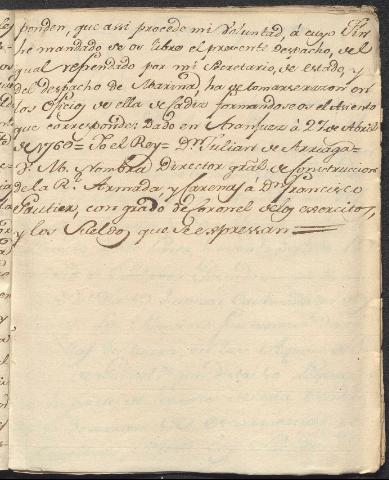 ponden, que assi procede mi Voluntad, á cuyo fin
hé mandado se os libre el presente despacho, del
qual refrendado por mi Secretario, de estado, y
del despacho de Marina, ha de tomarse razon en
los Oficios de ella de Cadiz formandose os el Asiento
que corresponde: Dado en Aranjuez á 27 de Abril
de 1760= Yo el Rey= Dn Julian de Arriaga=
V. M. Nombra Director gral. de Construccion
de la Rl. Armada y farenas á Dn. francisco
Gautier, con grado de Coronel de los exercitos,
y los Sueldos que se expressan=